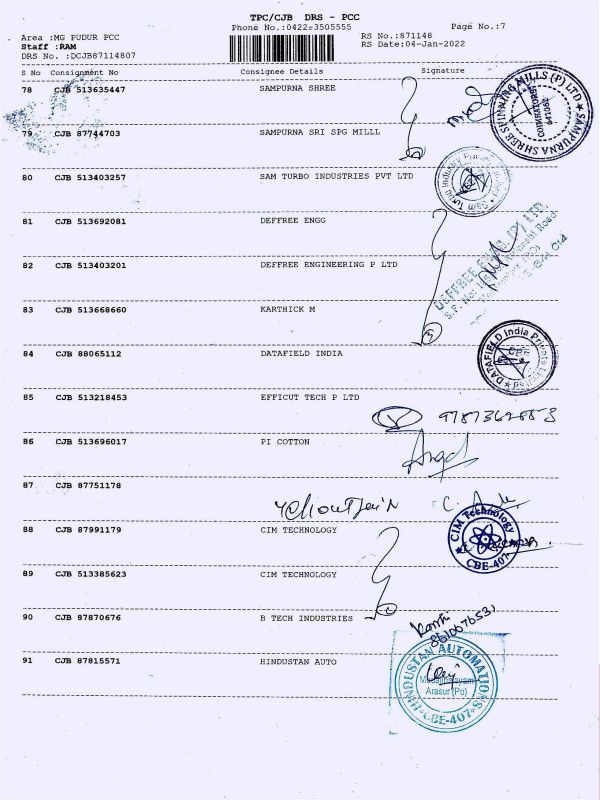 TPC/CJB DRS - PCC
Phone No.:0422±3505555 Page No.:7
Area :MG PUDUR PCC RS No.:871148
Staff :RAM RS Date:04-Jan-2022
DRS No. :DCJB87114807
S No Consignment No Consignee Details Signature
78 CJB 513635447 SAMPURNA SHREE
SAMPURNA SHREE SPINNING MILLS (P) LTD
COIMBATORE
79 CJB 87744703 SAMPURNA SRI SPG MILLL
80 CJB 513403257 SAM TURBO INDUSTRIES PVT LTD
Sam Turbo Industry Private
81 CJB 513692081 DEFFREE ENGG
DEFFREE ENGG (P) LTD
S.F. No:
Road
82 CJB 513403201 DEFFREE ENGINEERING P LTD
83 CJB 513668660 KARTHICK M
84 CJB 88065112 DATAFIELD INDIA
DATAFIELD India Private
CBE
85 CJB 513218453 EFFICUT TECH P LTD
86 CJB 513696017 PI COTTON
87 CJB 87751178
88 CJB 87991179 CIM TECHNOLOGY
CIM Technology
CBE-407
89 CJB 513385623 CIM TECHNOLOGY
90 CJB 87870676 B TECH INDUSTRIES
8610076531
91 CJB 87815571 HINDUSTAN AUTO
HINDUSTAN AUTOMATIONS
Arasur (Po)
CBE-407